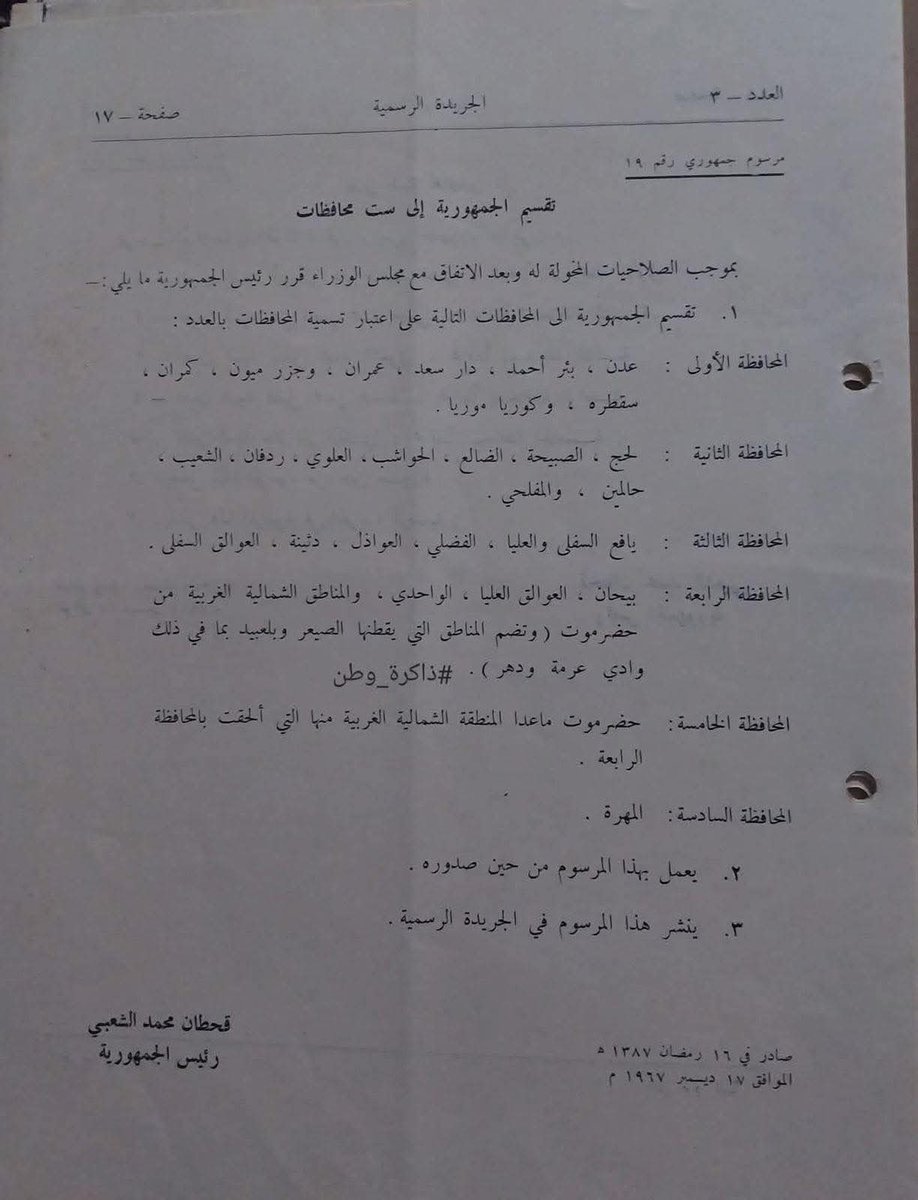 العدد – ٣ الجريدة الرسمية صفحة – ١٧
مرسوم جمهوري رقم ١٩
تقسيم الجمهورية إلى ست محافظات
بموجب الصلاحيات المخولة له وبعد الاتفاق مع مجلس الوزراء قرر رئيس الجمهورية ما يلي :–
١. تقسيم الجمهورية الى المحافظات التالية على اعتبار تسمية المحافظات بالعدد :
المحافظة الأولى : عدن ، بئر أحمد ، دار سعد ، عمران ، وجزر ميون ، كمران ،
سقطره ، وكوريا موريا .
المحافظة الثانية : لحج ، الصبيحة ، الضالع ، الحواشب ، العلوي ، ردفان ، الشعيب ،
حالمين ، والمفلحي .
المحافظة الثالثة : يافع السفلى والعليا ، الفضلي ، العواذل ، دثينة ، العوالق السفلى .
المحافظة الرابعة : بيحان ، العوالق العليا ، الواحدي ، والمناطق الشمالية الغربية من
حضرموت ( وتضم المناطق التي يقطنها الصيعر وبلعبيد بما في ذلك
وادي عرمة ودهر ) . #ذاكرة_وطن
المحافظة الخامسة : حضرموت ماعدا المنطقة الشمالية الغربية منها التي ألحقت بالمحافظة
الرابعة .
المحافظة السادسة : المهرة .
٢. يعمل بهذا المرسوم من حين صدوره .
٣. ينشر هذا المرسوم في الجريدة الرسمية .
قحطان محمد الشعبي
رئيس الجمهورية
صادر في ١٦ رمضان ١٣٨٧ ه
الموافق ١٧ ديسمبر ١٩٦٧ م